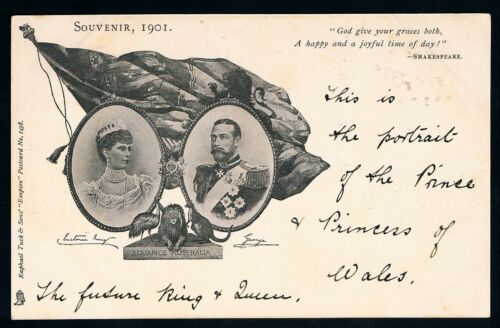 SOUVENIR, 1901.
"God give your graces both,
A happy and a joyful time of day!"
—SHAKESPEARE.
This is
the portrait
of the Prince
& Princess of
Wales.
Victoria Mary
George
ADVANCE AUSTRALIA
The future King & Queen.
Raphael Tuck & Sons' "Empire" Postcard No. 1458.